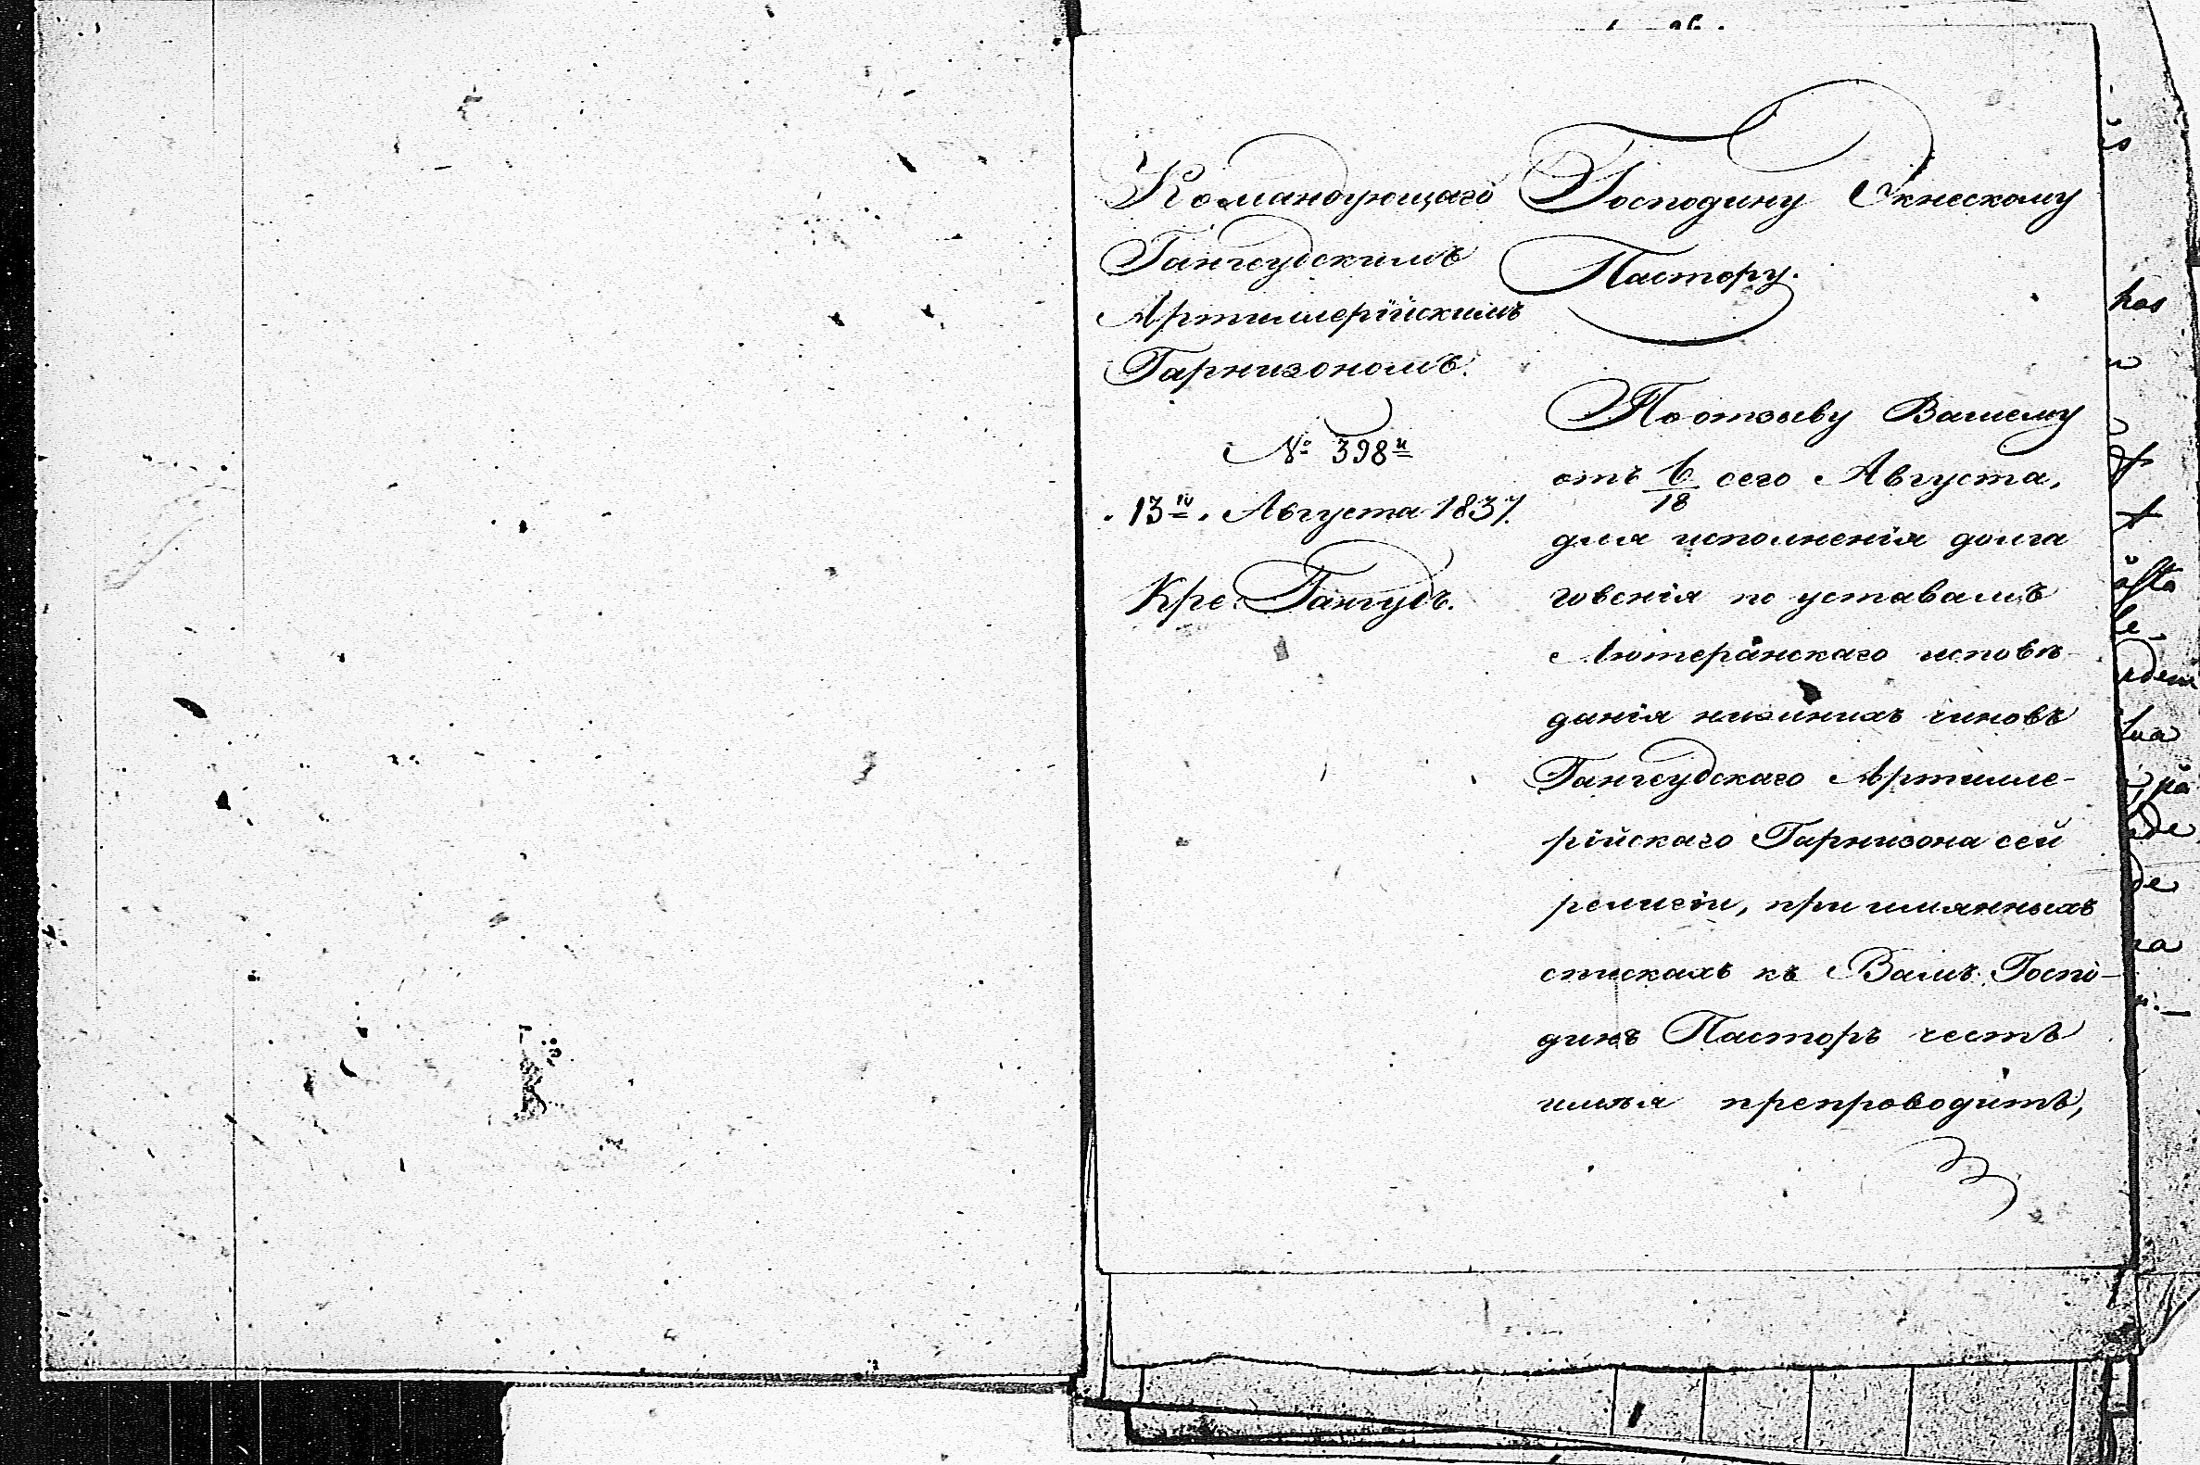 Командующаго
Гангеудскимъ
Артиллерійскимъ
Гарнизономъ.
№ 398й
13го Августа 1837.
Кре: Гангудъ.
Господину Экнескому
Пастору.
По отзыву Вашему
отъ 6/18 сего Августа,
для исполненія долга
говенія по уставамъ
Лютеранскаго исповѣ-
данія нижнихъ чиновъ
Гангеудскаго Артилле-
рійскаго Гарнизона сей
религіи, при имянныхъ
спискахъ къ Вамъ Госпо-
динъ Пасторъ честь
имѣя препроводить,
has
de